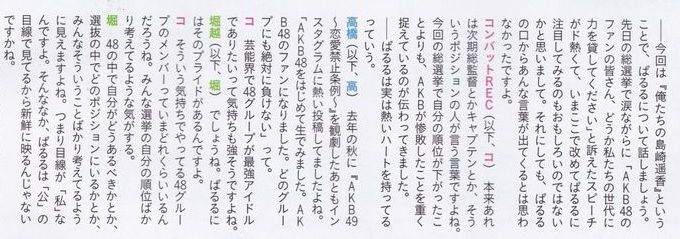 ――今回は『俺たちの島崎遥香』という
ことで、ぱるるについて話しましょう。
先日の総選挙で涙ながらに「AKB48の
ファンの皆さん、どうか私たちの世代に
力を貸してください」と訴えたスピーチ
がド熱くて、いまここで改めてぱるるに
注目してみるのもおもしろいのではない
かと思いまして。それにしても、ぱるる
の口からあんな言葉が出てくるとは思わ
なかったですよ。
コンバットREC(以下、コ) 本来あれ
は次期総監督とかキャプテンとか、そう
いうポジションの人が言う言葉ですよね。
今回の総選挙で自分の順位が下がったこ
とよりも、AKBが惨敗したことを重く
捉えているのが伝わってきました。
――ぱるるは実は熱いハートを持ってる
っていう。
高橋(以下、高) 去年の秋に『AKB49
〜恋愛禁止条例〜』を観劇したあともイン
スタグラムに熱い投稿してましたよね。
「AKB48をはじめて生でみました。AK
B48のファンになりました。どのグルー
プにも絶対に負けない」って。
コ 芸能界で48グループが最強アイドル
でありたいって気持ちも強そうですよね。
堀越(以下、堀) でしょうね。ぱるるに
はそのプライドがあるんですよ。
コ そういう気持ちでやってる48グルー
プのメンバーっていまどれくらいいるん
だろうね。みんな選挙の自分の順位ばか
り考えてるような気がする。
堀 48の中で自分がどうあるべきかとか、
選抜の中でどのポジションにいるかとか、
みんなそういうことばかり考えてるよう
に見えますよね。つまり目線が「私」な
んですよ。そんななか、ぱるるは「公」の
目線で見てるから新鮮に映るんじゃない
ですかね。